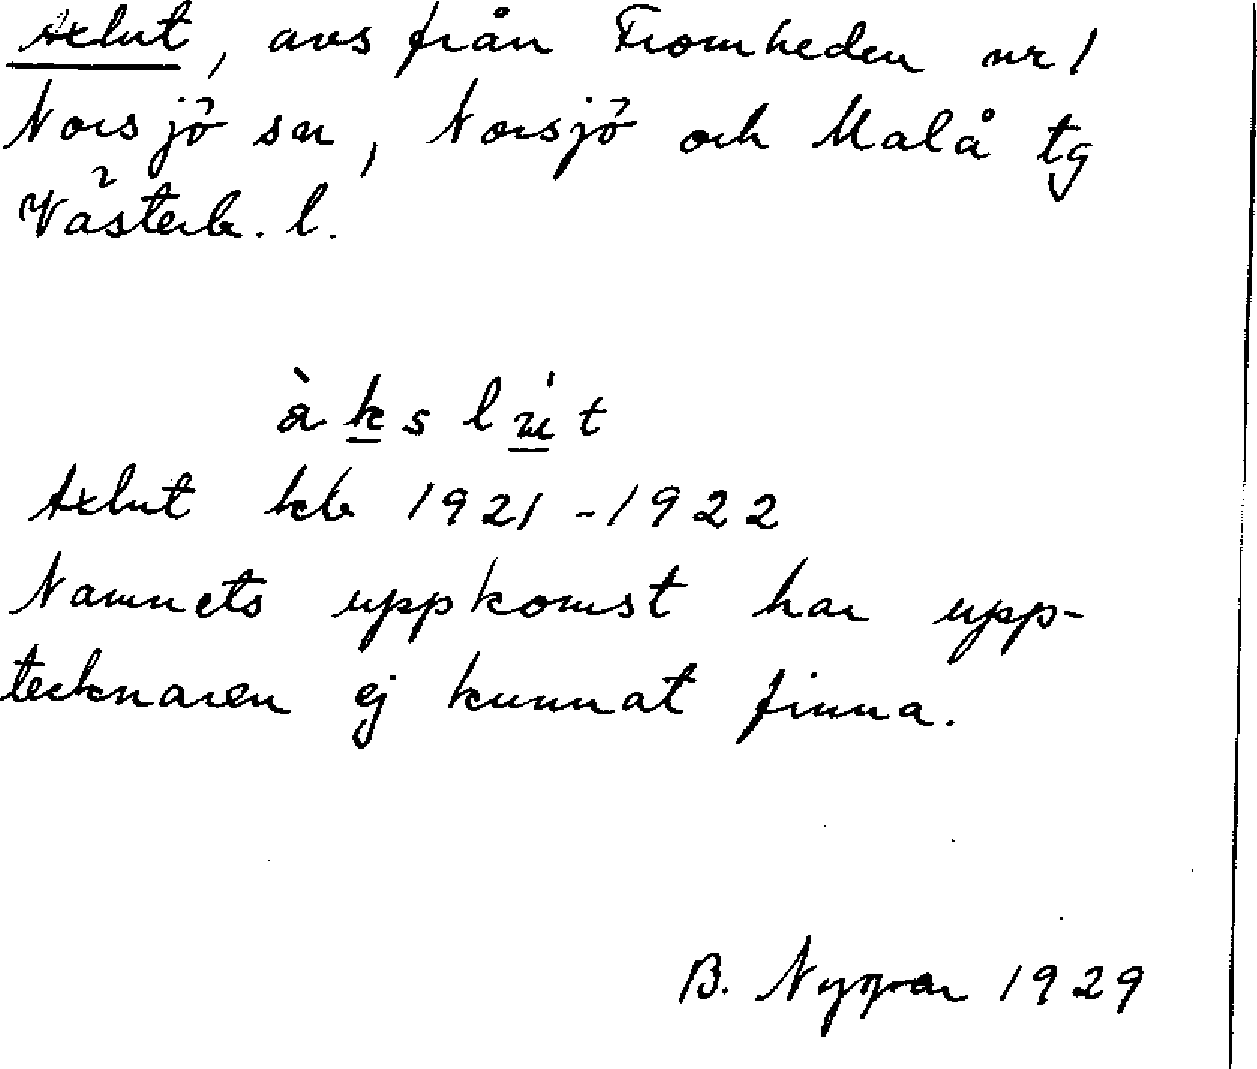 Axlut, avs från Fromheden nr 1
Norsjö sn, Norsjö och Malå tg
Västerb. l.
àkslu̍t
Axlut kb 1921-1922
Namnets uppkomst har upp-
tecknaren ej kunnat finna.
B. 1929